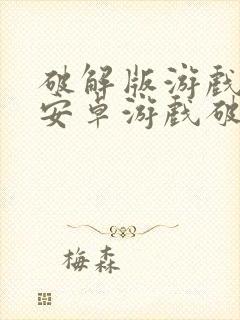 破解版游戏
安卓游戏破
梅森